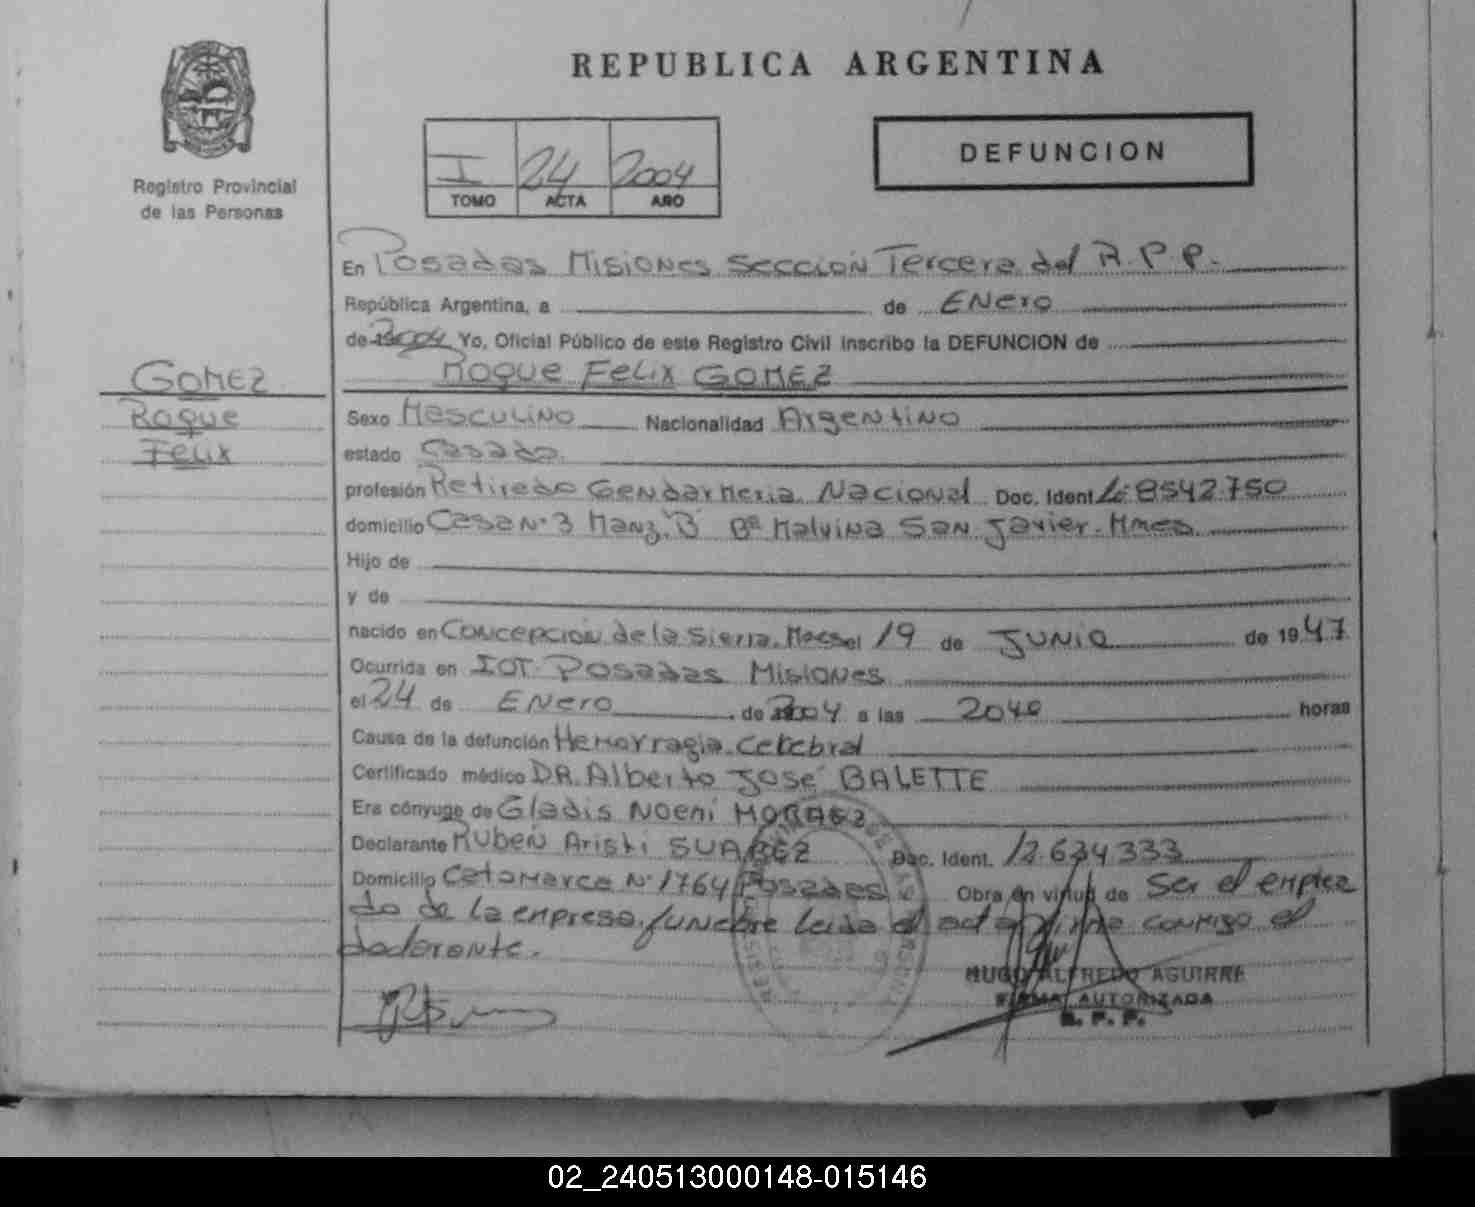 REPUBLICA ARGENTINA
Registro Provincial
de las Personas
I 24 2004
TOMO ACTA AÑO
DEFUNCION
En Posadas Misiones Sección Tercera del R.P.P.
República Argentina, a de Enero
de 2004 Yo, Oficial Público de este Registro Civil inscribo la DEFUNCION de
Roque Felix GOMEZ
GOMEZ
Roque
Felix
Sexo Masculino Nacionalidad Argentino
estado Casado.
profesión Retirado Gendarmeria Nacional Doc. Ident. 8542.750
domicilio Casa N° 3 Manz. "B" B° Malvina San Javier. Mnes.
Hijo de
y de
nacido en Concepción de la Sierra. el 19 de JUNIO de 1947
Ocurrida en IOT. Posadas Misiones
el 24 de Enero de 2004 a las 2040 horas
Causa de la defunción Hemorragia Cerebral
Certificado médico DR. Alberto José BALETTE
Era cónyuge de Gladis Noemi
Declarante Ruben Aristi SUAREZ Doc. Ident. 12.634.333
Domicilio Catamarca N° 1764 Posadas Obra en virtud de Ser el emplea
do de la empresa funebre leida el acta firma conmigo el
declarante.
HUGO ALFREDO AGUIRRE
FIRMA AUTORIZADA
R. P. P.
02_240513000148-015146